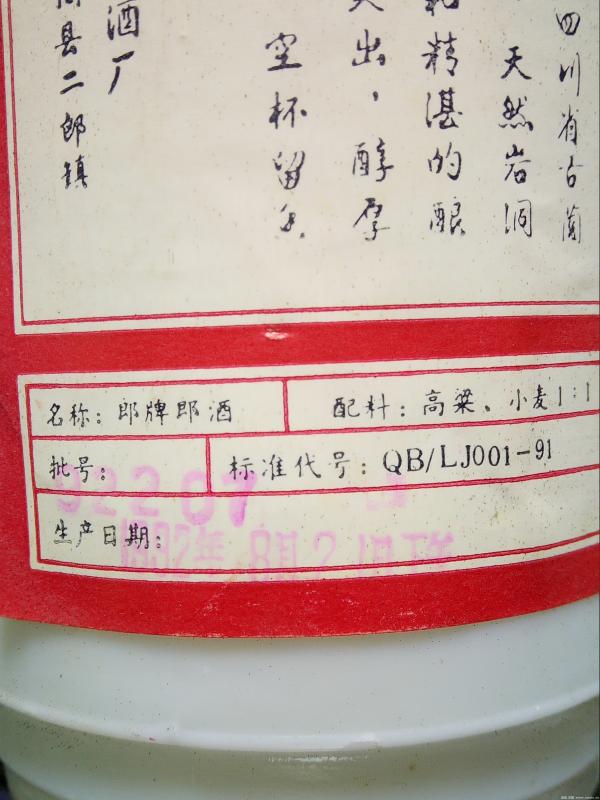 四川省古蔺
天然岩洞
和精湛的酿
出，醇厚
空杯留香
酒厂
蔺县二郎镇
名称：郎牌郎酒
配料：高粱、小麦1：1
批号：
92207
标准代号：QB/LJ001-91
生产日期：
1992年8月2